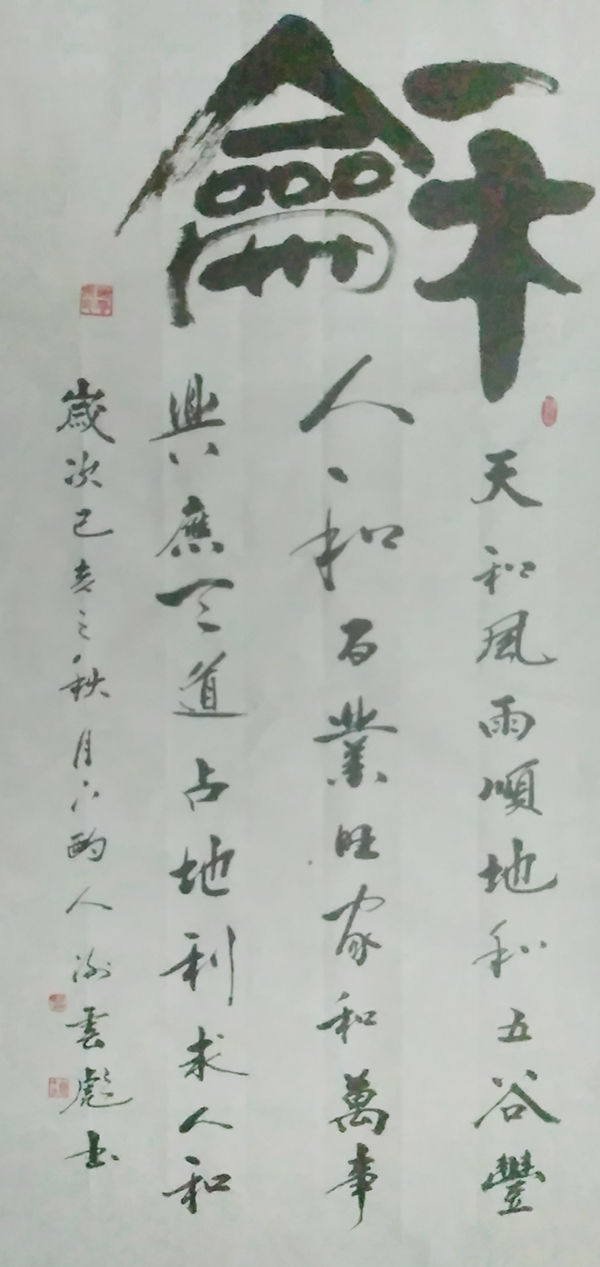 龢
天和風雨順地和五谷豐
人和百業旺家和萬事
興應天道占地利求人和
歲次己亥之秋月下酌人謝雲彪书